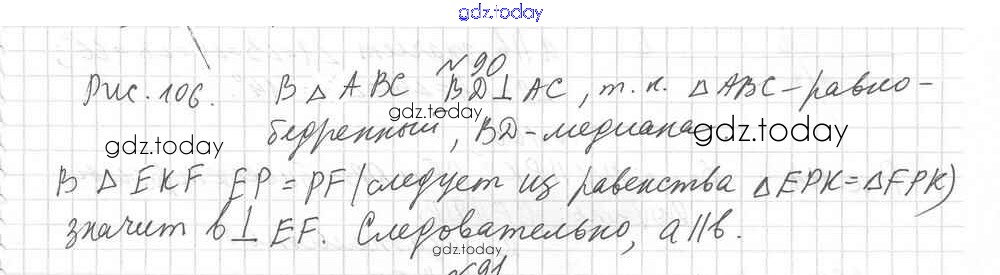 gdz.today
№90
Рис. 106. В △ ABC BD⊥AC, т.к. △ABC-равно-
gdz.today
бедренный, BD-медиана
gdz.today
gdz.today
В △ EKF EP = PF (следует из равенства △EPK=△FPK)
значит b⊥EF. Следовательно, a||b.
gdz.today
№91